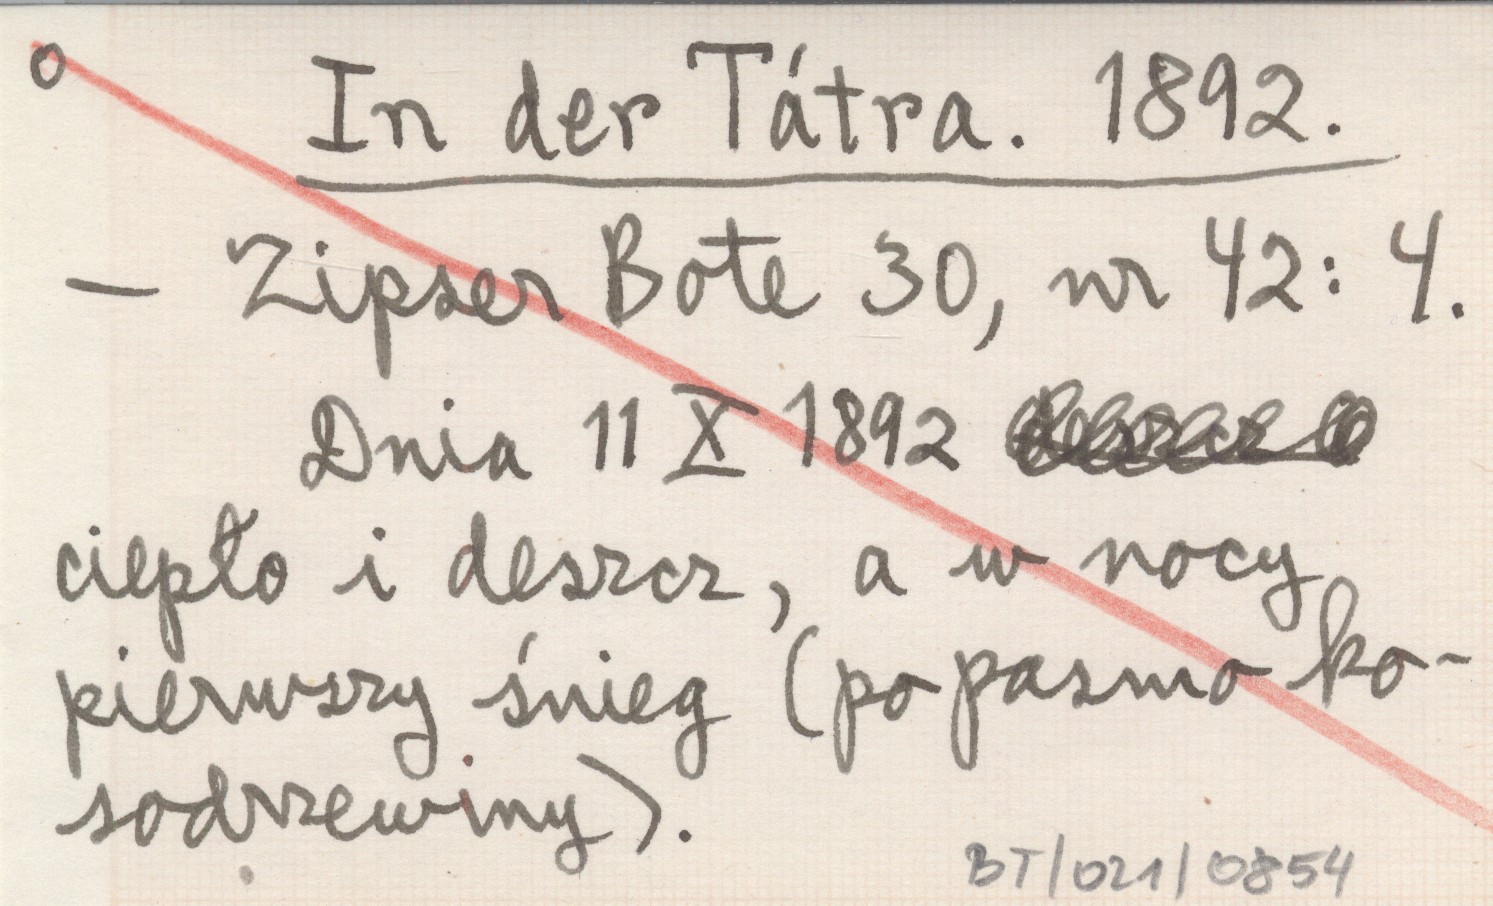 o In der Tátra. 1892.
— Zipser Bote 30, nr 42: 4.
Dnia 11 X 1892
ciepło i deszcz, a w nocy
pierwszy śnieg (po pasmo ko-
sodrzewiny).
BT/021/0854